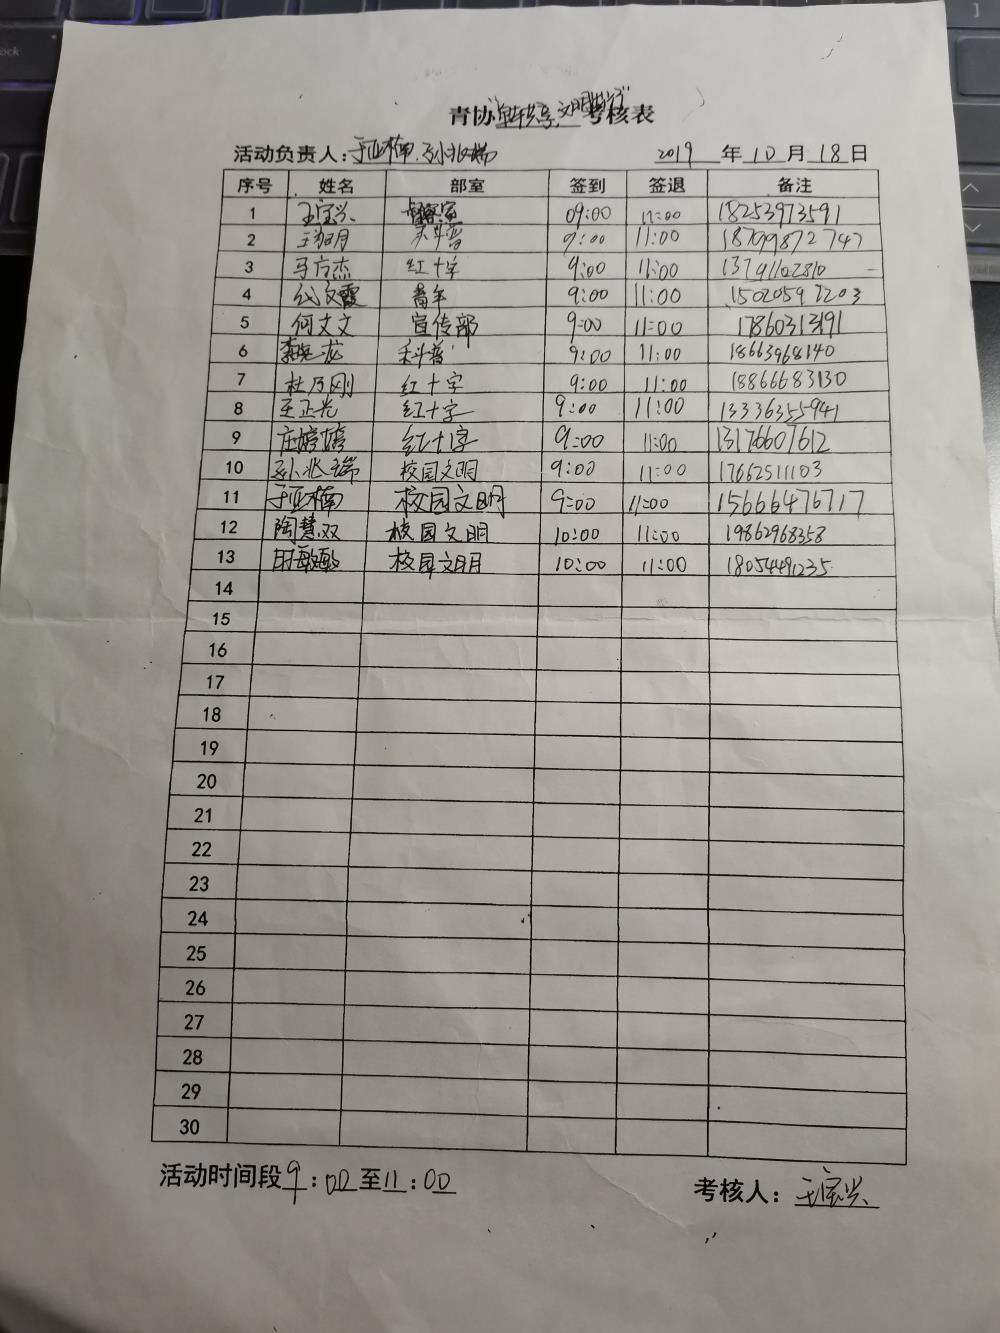 青协"单车共享,文明出行"考核表
活动负责人:于亚楠、孙兆瑞 2019 年 10 月 18 日
序号 姓名 部室 签到 签退 备注
1 王宝兴 09:00 11:00 18253973591
2 9:00 11:00 18709872747
3 马广杰 红十字 9:00 11:00 13791102810
4 代文霞 青年 9:00 11:00 15020592203
5 何文文 宣传部 9:00 11:00 17860313191
6 李晃龙 科普 9:00 11:00 18663968140
7 杜乃刚 红十字 9:00 11:00 18866683130
8 王正光 红十字 9:00 11:00 13336355941
9 庄婷婷 红十字 9:00 11:00 13176607612
10 孙兆瑞 校园文明 9:00 11:00 17662511103
11 于亚楠 校园文明 9:00 11:00 15666476717
12 陶慧双 校园文明 10:00 11:00 19862968358
13 时敏敏 校园文明 10:00 11:00 18054491235
14
15
16
17
18
19
20
21
22
23
24
25
26
27
28
29
30
活动时间段 9:00 至 11:00
考核人:王宝兴